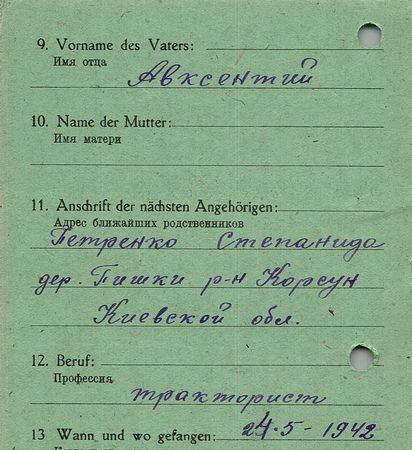 9. Vorname des Vaters:
Имя отца
Авксентий
10. Name der Mutter:
Имя матери
11. Anschrift der nächsten Angehörigen:
Адрес ближайших родственников
Петренко Степанида
дер. Пишки р-н Корсун
Киевской обл.
12. Beruf:
Профессия
тракторист
13 Wann und wo gefangen: 24.5-1942